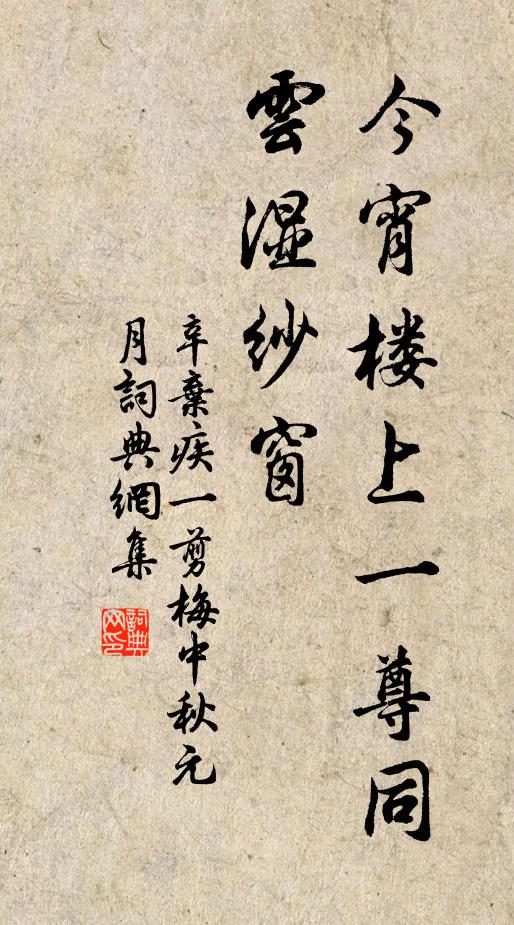 今宵楼上一尊同
雲濕紗窗
辛棄疾一剪梅中秋元
月詞典網集
詞典
网印